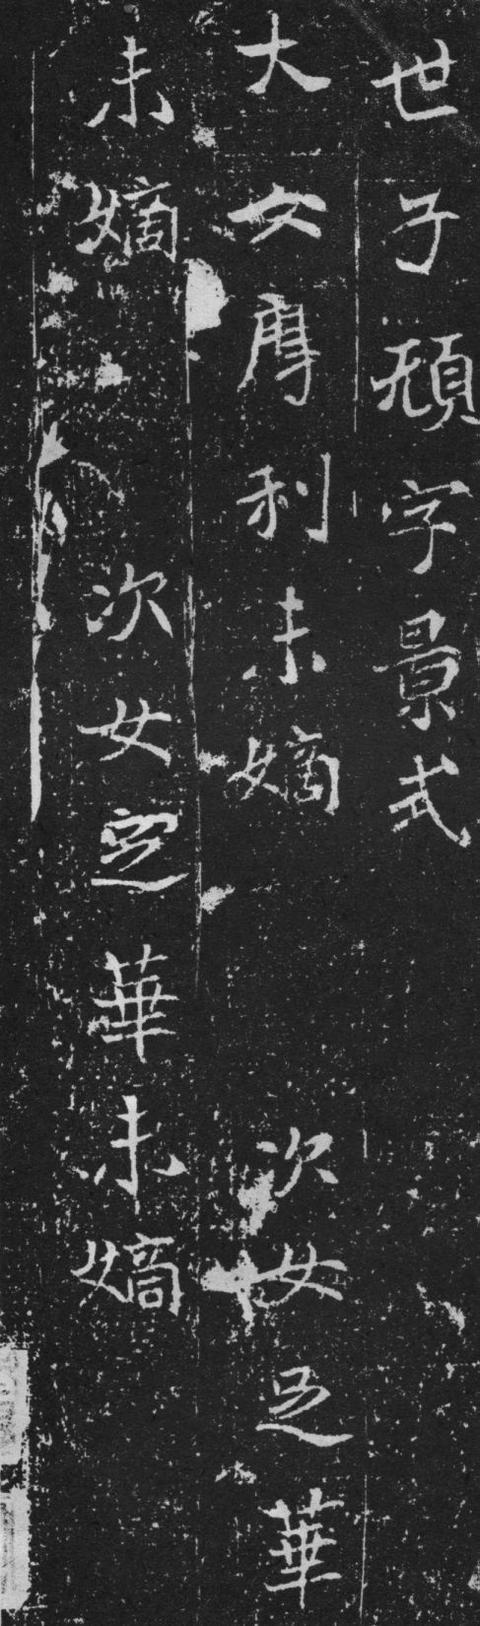 世子頊字景式
大女利未嫡 次女華
未嫡 次女華未嫡